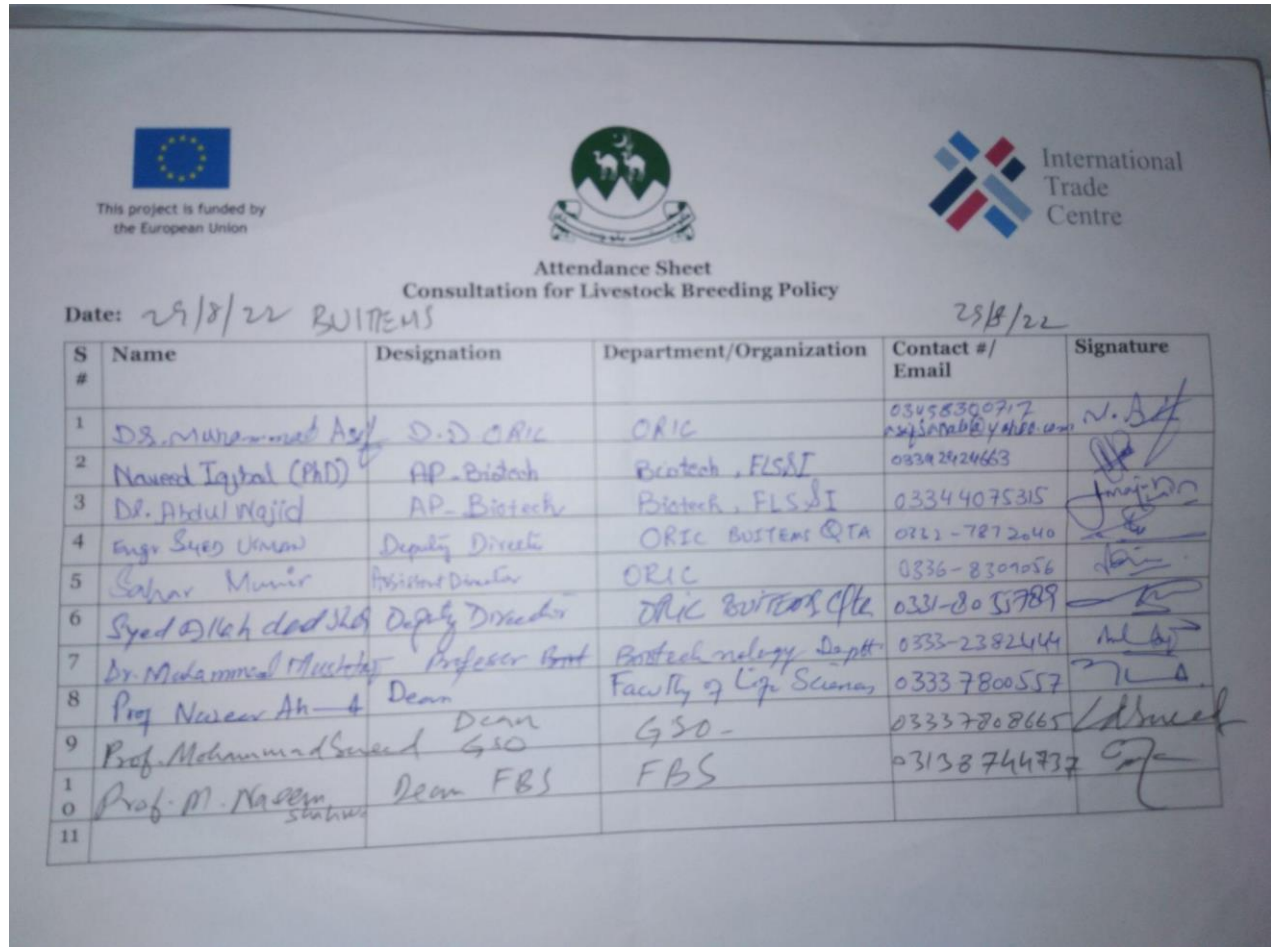 This project is funded by
the European Union
International
Trade
Centre
Attendance Sheet
Consultation for Livestock Breeding Policy
Date: 29/8/22 BUITEMS 29/8/22
S # Name Designation Department/Organization Contact #/ Email Signature
1 Dr. Muhammad Asif D.D ORIC ORIC 03458300717
2 Naveed Iqbal (PhD) AP-Biotech Biotech, FLS&I 03392424663
3 Dr. Abdul Wajid AP-Biotech Biotech, FLS&I 03344075315
4 Engr Syed Deputy ORIC BUITEMS QTA
5 Sahar Munir Assistant Director ORIC 0336-8301056
6 Syed Deputy Director ORIC BUITEMS 0331-8055789
7 Dr. Muhammad Mushtaq Biotechnology Deptt 0333-2382444
8 Prof Dean Faculty of Life Sciences 03337800557
9 Prof. Mohammad Saeed Dean GSO GSO- 03337808665
10 Prof. M. Naeem Dean FBS FBS 03138744737
11